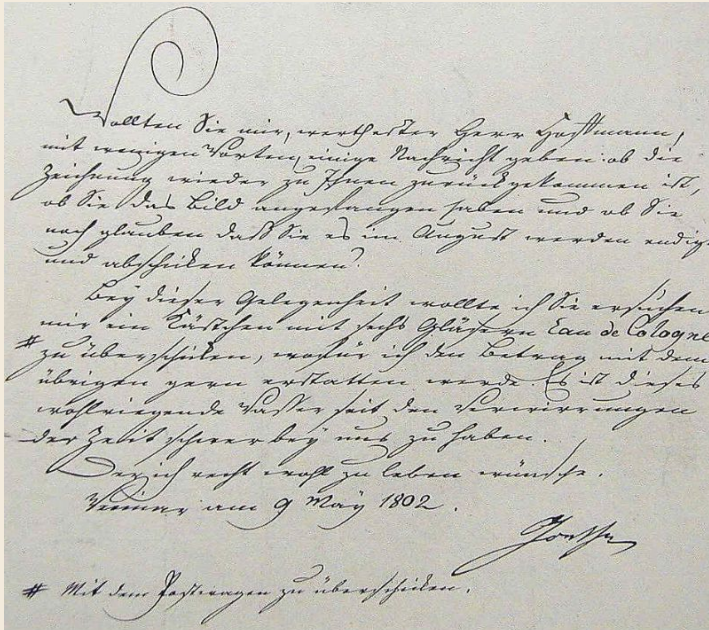 Wollten Sie mir, werthester Herr Hoffmann,
mit wenigen Worten, einige Nachricht geben: ob die
Zeichnung wieder zu Ihnen zurück gekommen ist,
ob Sie das Bild angefangen haben und ob Sie
noch glauben daß Sie es im August werden endig
und abschicken können?
Bey dieser Gelegenheit wollte ich Sie ersuchen
mir ein Kästchen mit sechs Gläsern Eau de Cologne
# zu überschicken, wofür ich den Betrag mit dem
übrigen gern erstatten werde. Es ist dieses
wohlriegende Wasser seit den Verwirrungen
der Zeit schwer bey uns zu haben.
Der ich recht wohl zu leben wünsche.
Weimar am 9 May 1802.
Goethe
# Mit dem Postwagen zu überschicken.